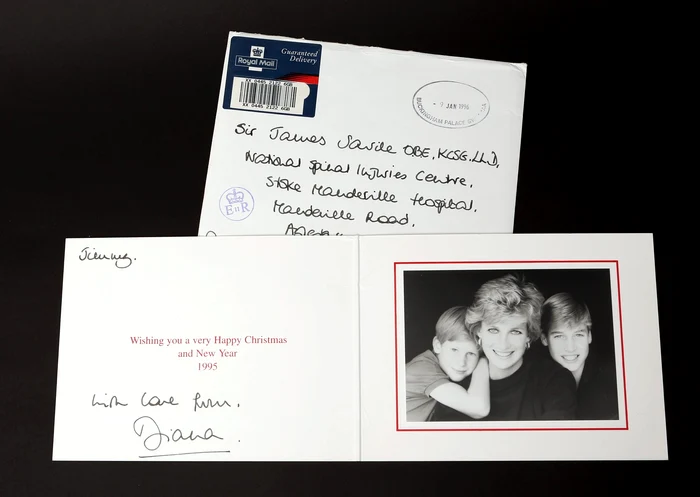 Royal Mail
Guaranteed
Delivery
XX 0445 2122 6GB
XX 0445 2122 6GB
- 9 JAN 1996
BUCKINGHAM PALACE
Sir James Savile OBE, KCSG. LL.D,
National Spinal Injuries Centre,
Stoke Mandeville Hospital.
Mandeville Road,
EIIR
Jimmy.
Wishing you a very Happy Christmas
and New Year
1995
with love from,
Diana.